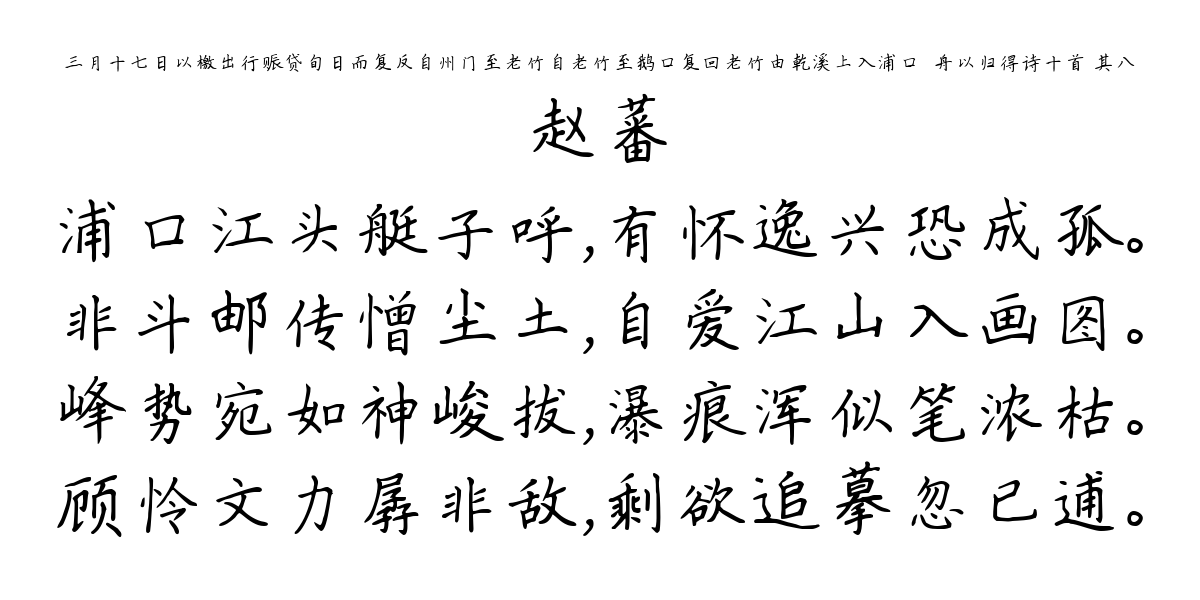 三月十七日以檄出行赈贷旬日而复反自州门至老竹自老竹至鹅口复回老竹由乾溪上入浦口 舟以归得诗十首 其八
赵蕃
浦口江头艇子呼,有怀逸兴恐成孤。
非斗邮传憎尘土,自爱江山入画图。
峰势宛如神峻拔,瀑痕浑似笔浓枯。
顾怜文力孱非敌,剩欲追摹忽已逋。